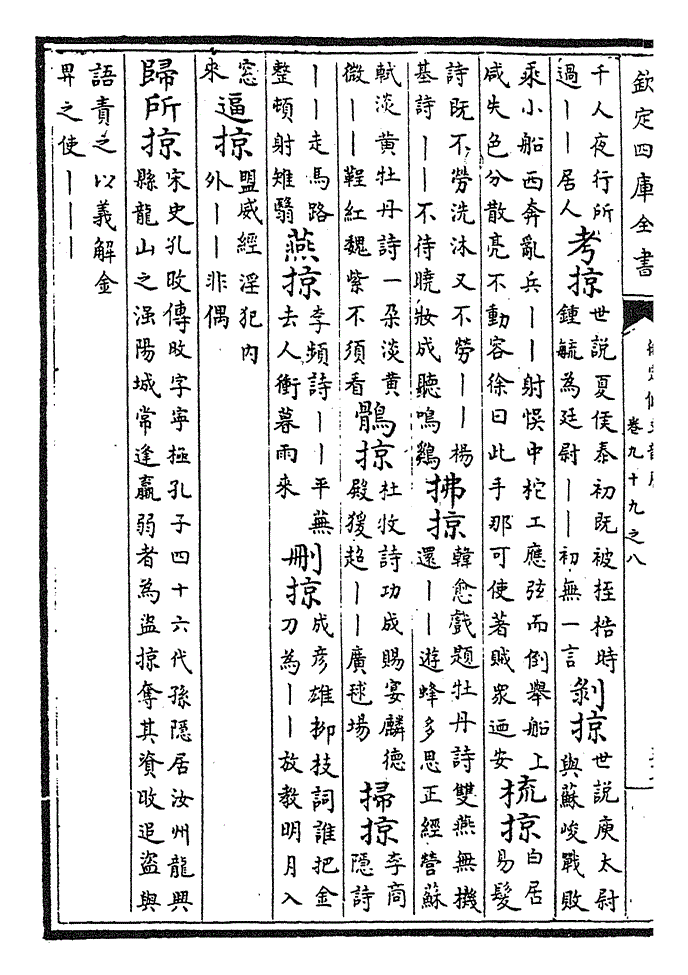 欽定四庫全書
卷九十九之八
千人夜行所
過――居人
考掠
世說夏侯泰初既被桎梏時
鍾毓為廷尉――初無一言
剝掠
世說庾太尉
與蘇峻戰敗
乘小船西奔亂兵――射悞中柁工應弦而倒舉船上
咸失色分散亮不動容徐曰此手那可使著賊衆迺安
梳掠
白居
易髮
詩既不勞洗沐又不勞――楊
基詩――不待曉妝成聽鳴鷄
拂掠
韓愈戲題牡丹詩雙燕無機
還――遊蜂多思正經營蘇
軾淡黄牡丹詩一朶淡黄
微――鞓紅魏紫不須看
鶻掠
杜牧詩功成賜宴麟德
殿猨超――廣毬場
掃掠
李商
隱詩
――走馬路
整頓射雉翳
燕掠
李頻詩――平蕪
去人衝暮雨來
刪掠
成彦雄栁技詞誰把金
刀為――放教明月入
窓
來
逼掠
盟威經淫犯内
外――非偶
歸所掠
宋史孔旼傳旼字寧極孔子四十六代孫隱居汝州龍興
縣龍山之强陽城常逢羸弱者為盜掠奪其資旼追盜與
語責之以義解金
畀之使―――